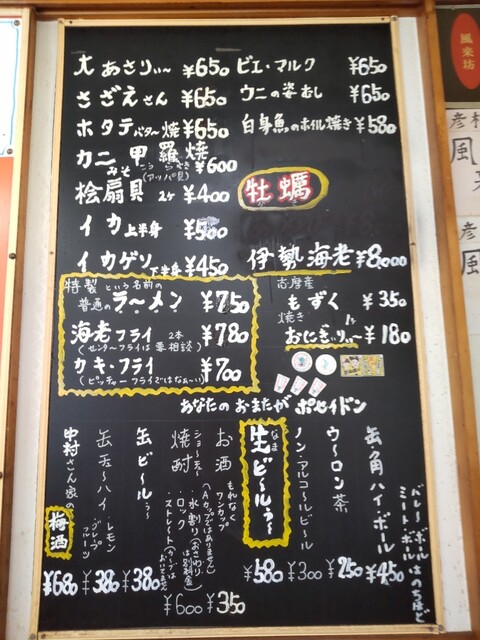 大あさりぃ〜 ¥650
さざえさん ¥650
ホタテバター焼 ¥650
カニみそ甲羅焼 ¥600
こうらやき
(アッパ貝)
桧扇貝 2ヶ ¥400
イカ上半身 ¥500
イカゲソ下半身 ¥450
ビェ・マルク ¥650
ウニの姿むし ¥650
白身魚のホイル焼き ¥580
牡蠣
伊勢海老 ¥8,000
特製という名前の
普通のラーメン ¥750
海老フライ 2本 ¥780
(センターフライは要相談)
カキ・フライ ¥700
(ピッチャーフライではなぁ〜い)
志摩産
もずく ¥350
焼き
おにぎぃりぃ〜 1ヶ ¥180
あなたのおまたがポセイドン
バレーボール
ミートボールはのちほど
缶・角ハイボール ¥450
ウ〜ロン茶 ¥250
ノン・アルコ〜ルビ〜ル ¥300
生ビ〜ルぅ〜 ¥580
なま
お酒 ¥350
もれなくワンカップ
(Aカップではありません)
焼酎 ¥600
ショ〜チュ〜
・水割り(おさわりは別料金)
・ロック
・ストレート(カーブはおいてません)
缶ビ〜ルぅ〜 ¥380
缶チュ〜ハイ ¥380
・レモン
・グレープフルーツ
中村さん家の梅酒 ¥680
風来坊
彦
風
彦
風